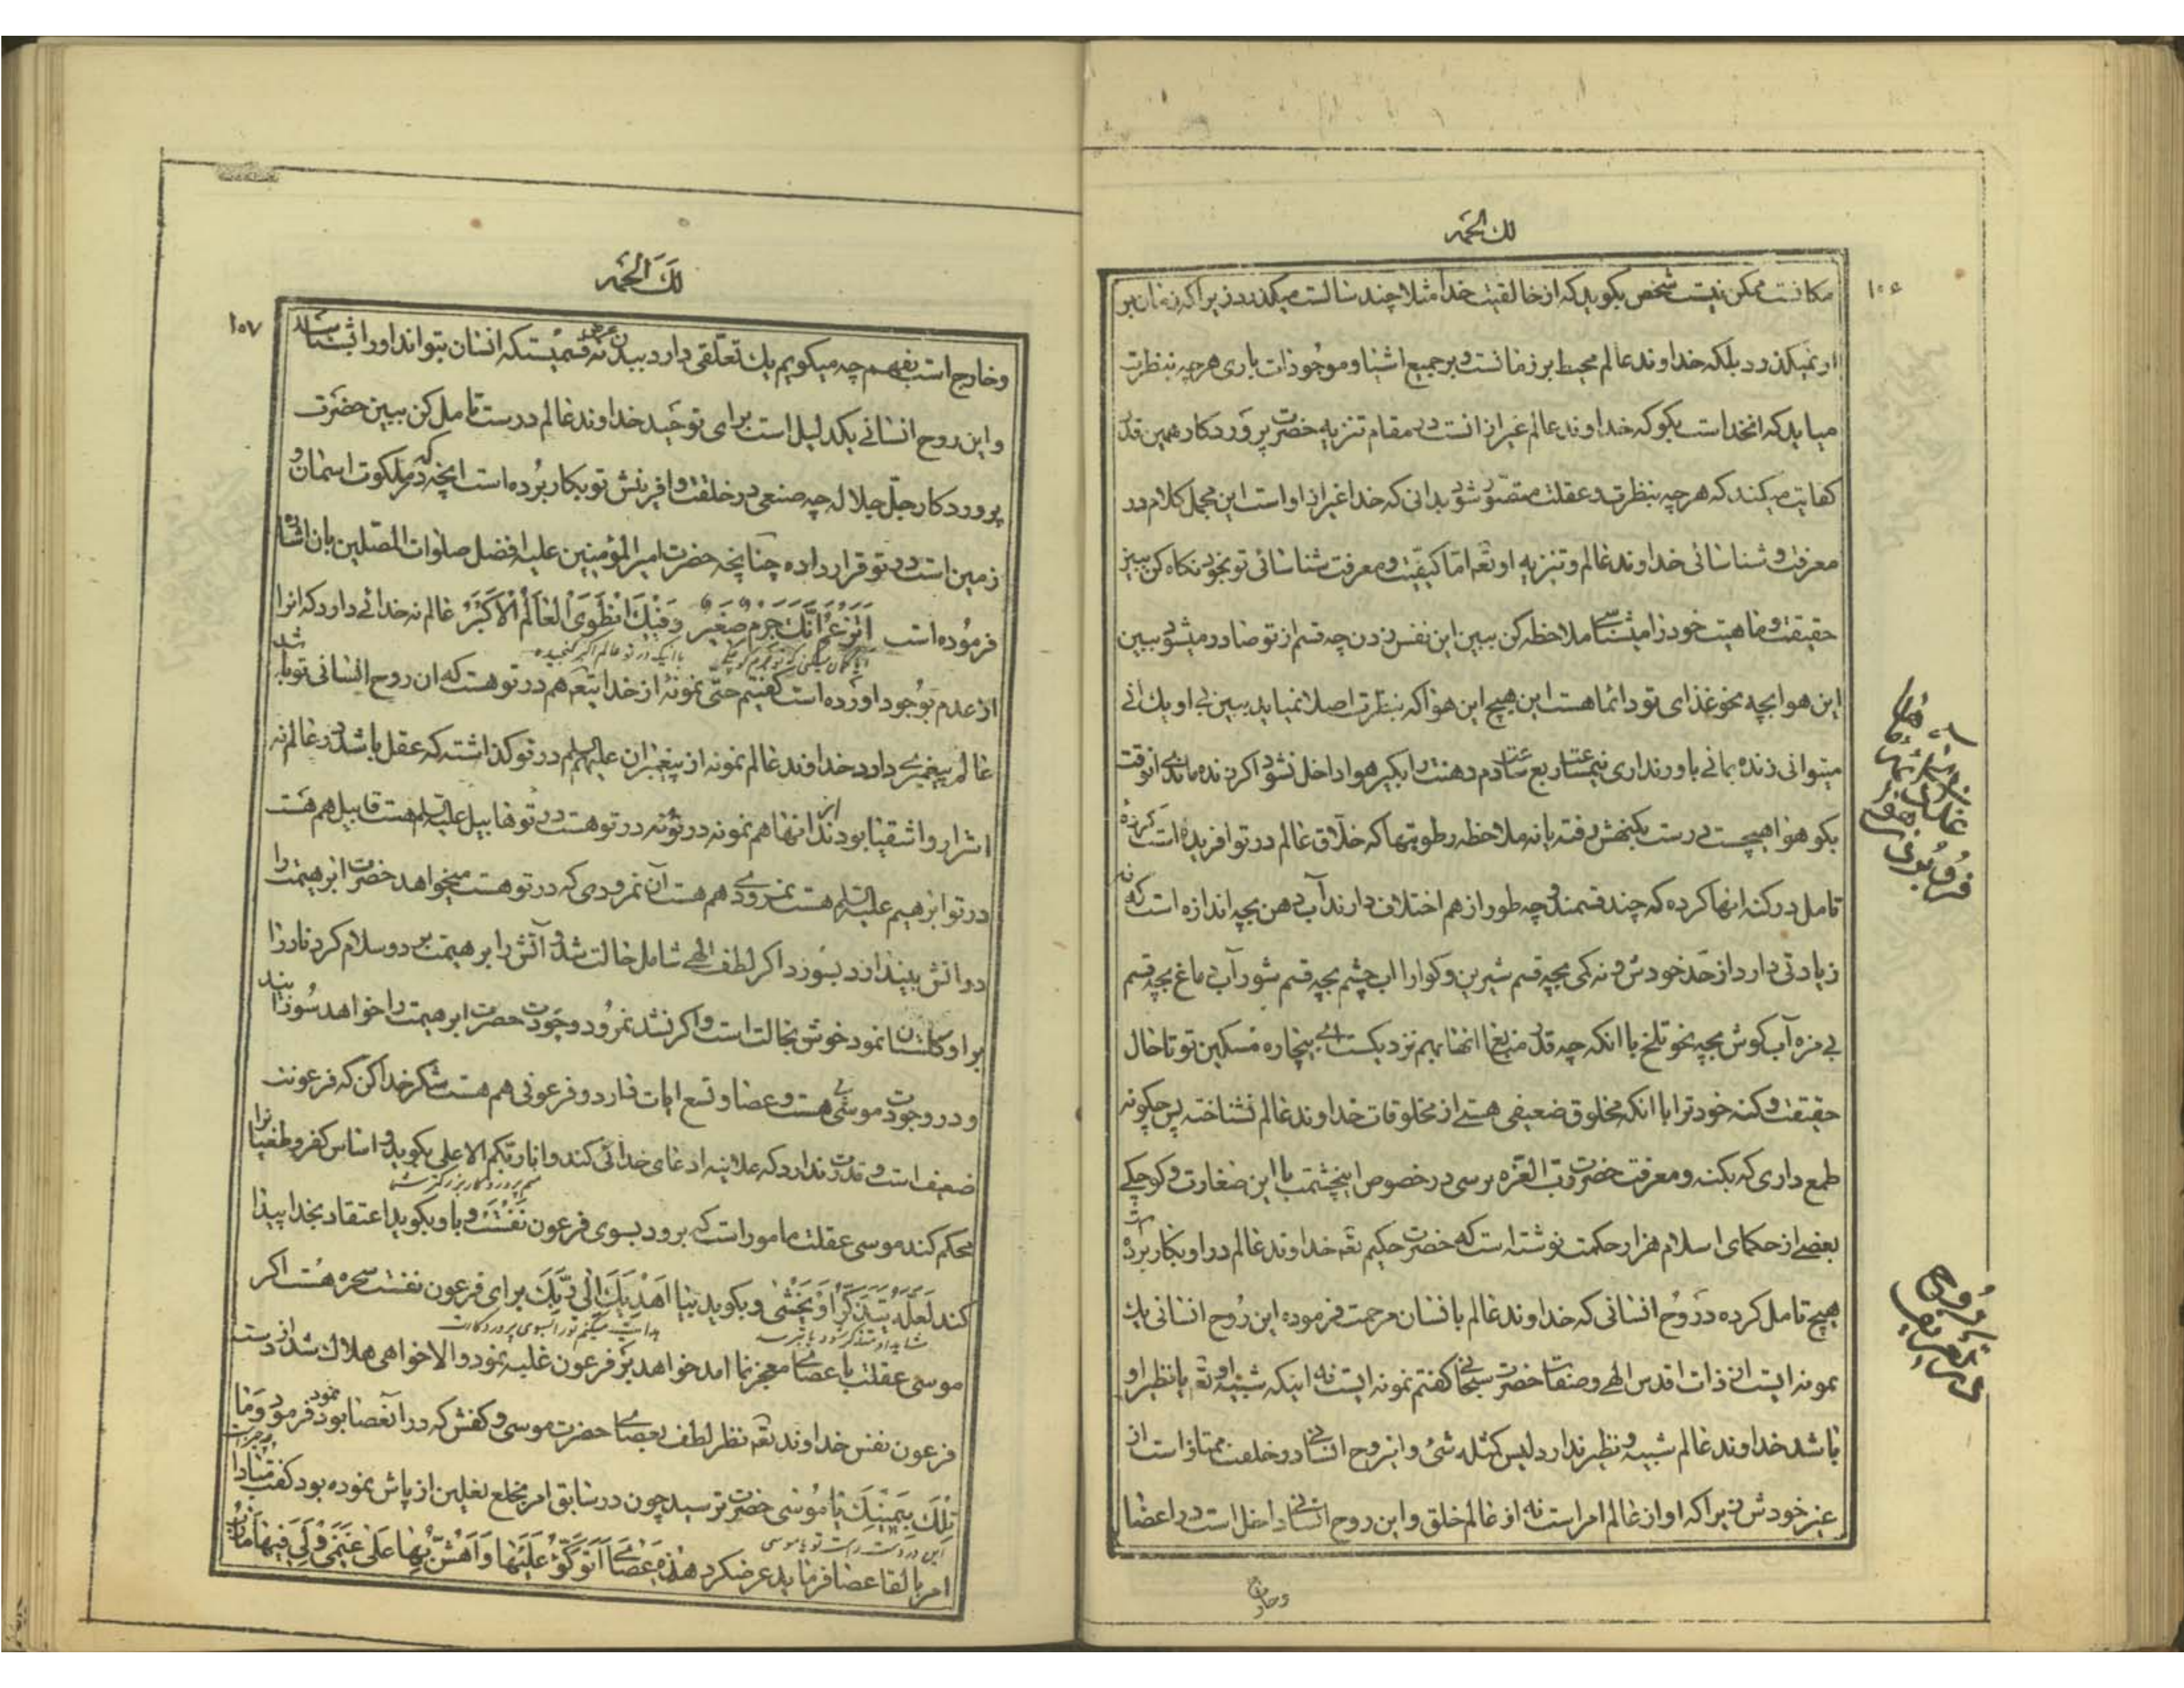 لك الحمد
۱۰۶
مکانست ممکن نیست شخص بکوید که از خالقیت خدا مثلا چند سالست میکذرد زیرا که زمان بر
او نمیکذرد بلکه خداوند عالم محیط بر زمانست و بر جمیع اشیا و موجودات باری هرچه بنظرت
میاید که انخداست بکو که خداوند عالم غیر از انست در مقام تنزیه حضرت پروردکار همین قدر
کفایت میکند که هرچه بنظرت و عقلت متصور شود بدانی که خدا غیر از او است این مجمل کلام در
معرفت و شناسائی خداوند عالم و تنزیه او تعه اما کیفیت و معرفت شناسائی تو بخود نکاه کن ببین
حقیقت و ماهیت خود را میشناسی ملاحظه کن ببین این نفس زدن چه قسم از تو صادر میشود ببین
این هوا بچه نحو غذای تو دائما هست این هیچ این هوا که بنظرت اصلا نمیاید ببین بی او یك انی
میتوانی زنده بمانی باور نداری نیمساعت ربع ساعت دم دهنت را بکیر هوا داخل نشود اکر زنده ماندی انوقت
بکو هوا هیچست درست بکنهش رفته یا نه ملاحظه رطوبتها که خلاق عالم در تو افریده است کرده
تامل در کنه انها کرده که چند قسمند و چه طور از هم اختلاف دارند آب دهن بچه اندازه است که نه
زیادتی دارد از حد خودش و نه کمی بچه قسم شیرین و کوارا اب چشم بچه قسم شور آب دماغ بچه قسم
بی مزه آب کوش بچه نحو تلخ با انکه چه قدر منبع انها بهم نزدیکست ای بیچاره مسکین تو تا حال
حقیقت و کنه خود ترا با انکه مخلوق ضعیفی هستی از مخلوقات خداوند عالم نشناخته پس چکونه
طمع داری که بکنه و معرفت حضرت رب العزه برسی در خصوص اینچشمت با این صغارت و کوچکی
بعضی از حکمای اسلام هزار حکمت نوشته است که حضرت حکیم تعه خداوند عالم در او بکار برده
هیچ تامل کرده در روح انسانی که خداوند عالم بانسان مرحمت فرموده این روح انسانی یك
نمونه ایست از ذات اقدس الهی و صفات حضرت سبحانی کفتم نمونه ایست نه اینکه شبیه او تعه یا نظیر او
باشد خداوند عالم شبیه و نظیر ندارد لیس کمثله شئ و اینروح انسانی در خلقت ممتاز است از
غیر خودش زیرا که او از عالم امر است نه از عالم خلق و این روح انسانی داخل است در اعضا
و خارج
لَكَ الحَمد
۱۰۷
و خارج است بفهم چه میکویم یك تعلقی دارد ببدن نه قسمیستکه انسان بتواند او را بشناسد
و این روح انسانی یکدلیل است برای توحید خداوند عالم درست تامل کن ببین حضرت
پروردکار جلّ جلاله چه صنعی در خلقت و افرینش تو بکار برده است انچه که در ملکوت اسمان و
زمین است در تو قرار داده چنانچه حضرت امیرالمؤمنین علیه افضل صلوات المصلین بان اشاره
فرموده است اَتَزعَمُ اَنَّكَ جِرمٌ صَغیرٌ وَفیكَ انطَوَی العالَمُ الاَکبَرُ عالم نه خدائی دارد که انرا
آیا کمان میکنی که تو جرم کوچکی با اینکه در تو عالم اکبر کنجیده شد
از عدم بوجود اورده است کفتیم حتی نمونۀ از خدایتعه هم در تو هست که ان روح انسانی تو باشد
عالم پیغمبری دارد خداوند عالم نمونه از پیغمبران علیهم السلم در تو کذاشته که عقل باشد در عالم نه
اشرار و اشقیا بودند از انها هم نمونه در تو نه در تو هست در تو هابیل علیه السلم هست قابیل هم هست
در تو ابرهیم علیه السلم هست نمرودی هم هست آن نمرودی که در تو هست میخواهد حضرت ابرهیمت را
در اتش بیندازد بسوزد اکر لطف الهی شامل حالت شد و آتش را بر ابرهیمت برد و سلام کرد نار را
بر او کلستان نمود خوش بحالت است و اکر نشد نمرود وجودت حضرت ابرهیمت را خواهد سوزانید
و در وجودت موسی هست و عصا و تسع ایات دارد و فرعونی هم هست شکر خدا کن که فرعونت
ضعیف است و قدرت ندارد که علانیه ادعای خدائی کند و انا ربکم الاعلی بکوید و اساس کفر و طغیانرا
منم پروردکار بزرکتر شما
محکم کند موسی عقلت مامور است که برود بسوی فرعون نفست و باو بکوید اعتقاد بخدا پیدا
کند لَعَلَّهُ یَتَذَکَّرُ اَو یَخشی و بکوید بیا اَهدِیَكَ اِلی رَبِّكَ برای فرعون نفست سحره هست اکر
شاید او متذکر شود یا بترسد هدایت میکنم تو را بسوی پروردکارت
موسی عقلت با عصای معجزنما امد خواهد بر فرعون غلبه نمود و الا خواهی هلاك شد از دست
فرعون نفس خداوند تعه نظر لطف بعصای حضرت موسی و کفش که در آنعصا بود نمود فرمود وَما
تِلكَ بِیَمینِكَ یا مُوسی حضرت ترسید چون در سابق امر بخلع نعلین از پاش نموده بود کفت مبادا
این در دست راست تو یا موسی
امر بالقا عصا فرماید عرضکرد هذِه عَصایَ اَتَوَکَّؤُ عَلَیها وَ اَهُشُّ بِها عَلی غَنَمی وَلِیَ فیها مَارِبُ